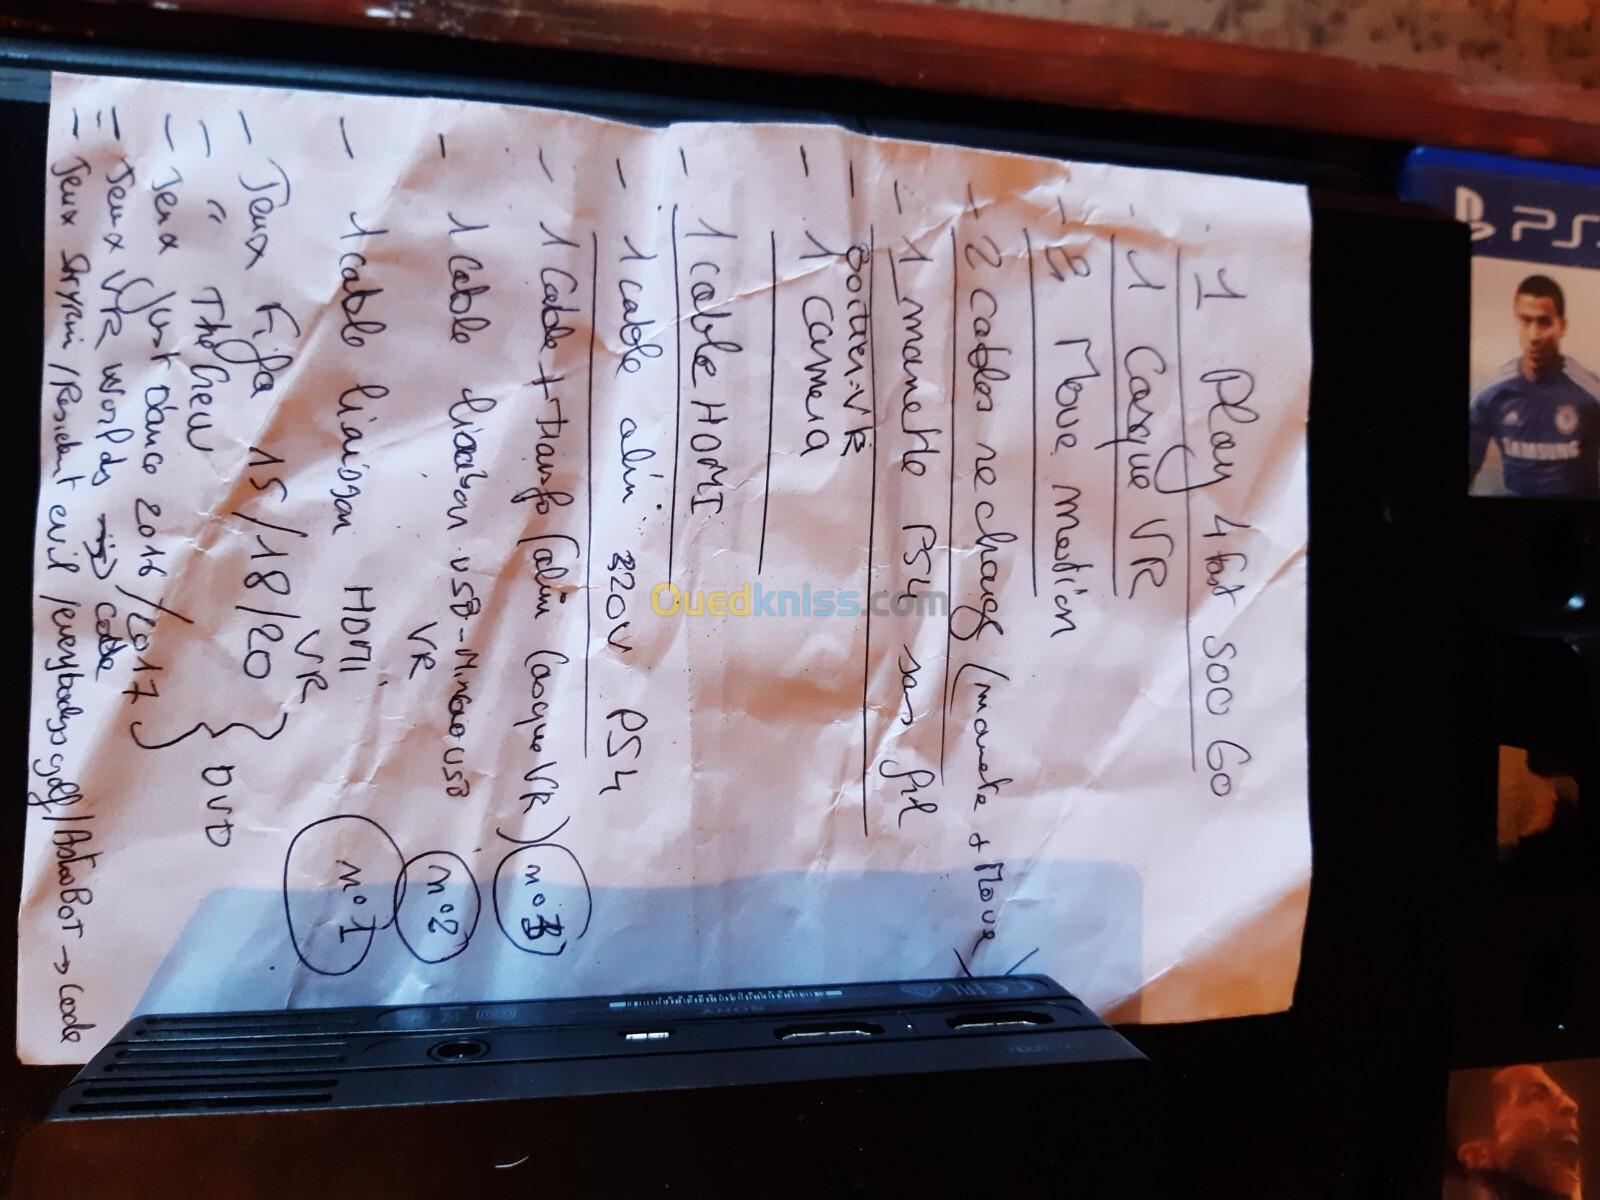 - 1 Play 4 fat 500 Go
- 1 Casque VR
- 2 Move motion
- 2 cables recharg (manete + Move)
- 1 manette PS4 sans fil
- Boitier-VR
- 1 Camera
- 1 cable HDMI
- 1 cable alim 220V PS4
- 1 Cable + Transfo (alim Casque VR) n°3
- 1 Cable liaison USB-Mini USB VR n°2
- 1 cable liaison HDMI VR n°1
- Jeux Fifa 15/18/20
- " The Crew
- Jeux Just Dance 2016/2017
} DVD
= Jeux VR Worlds → code
= Jeux Skyrim/Resident evil/everybodys golf/AstroBot → code
Ouedkniss.com
PS
SAMSUNG
SONY